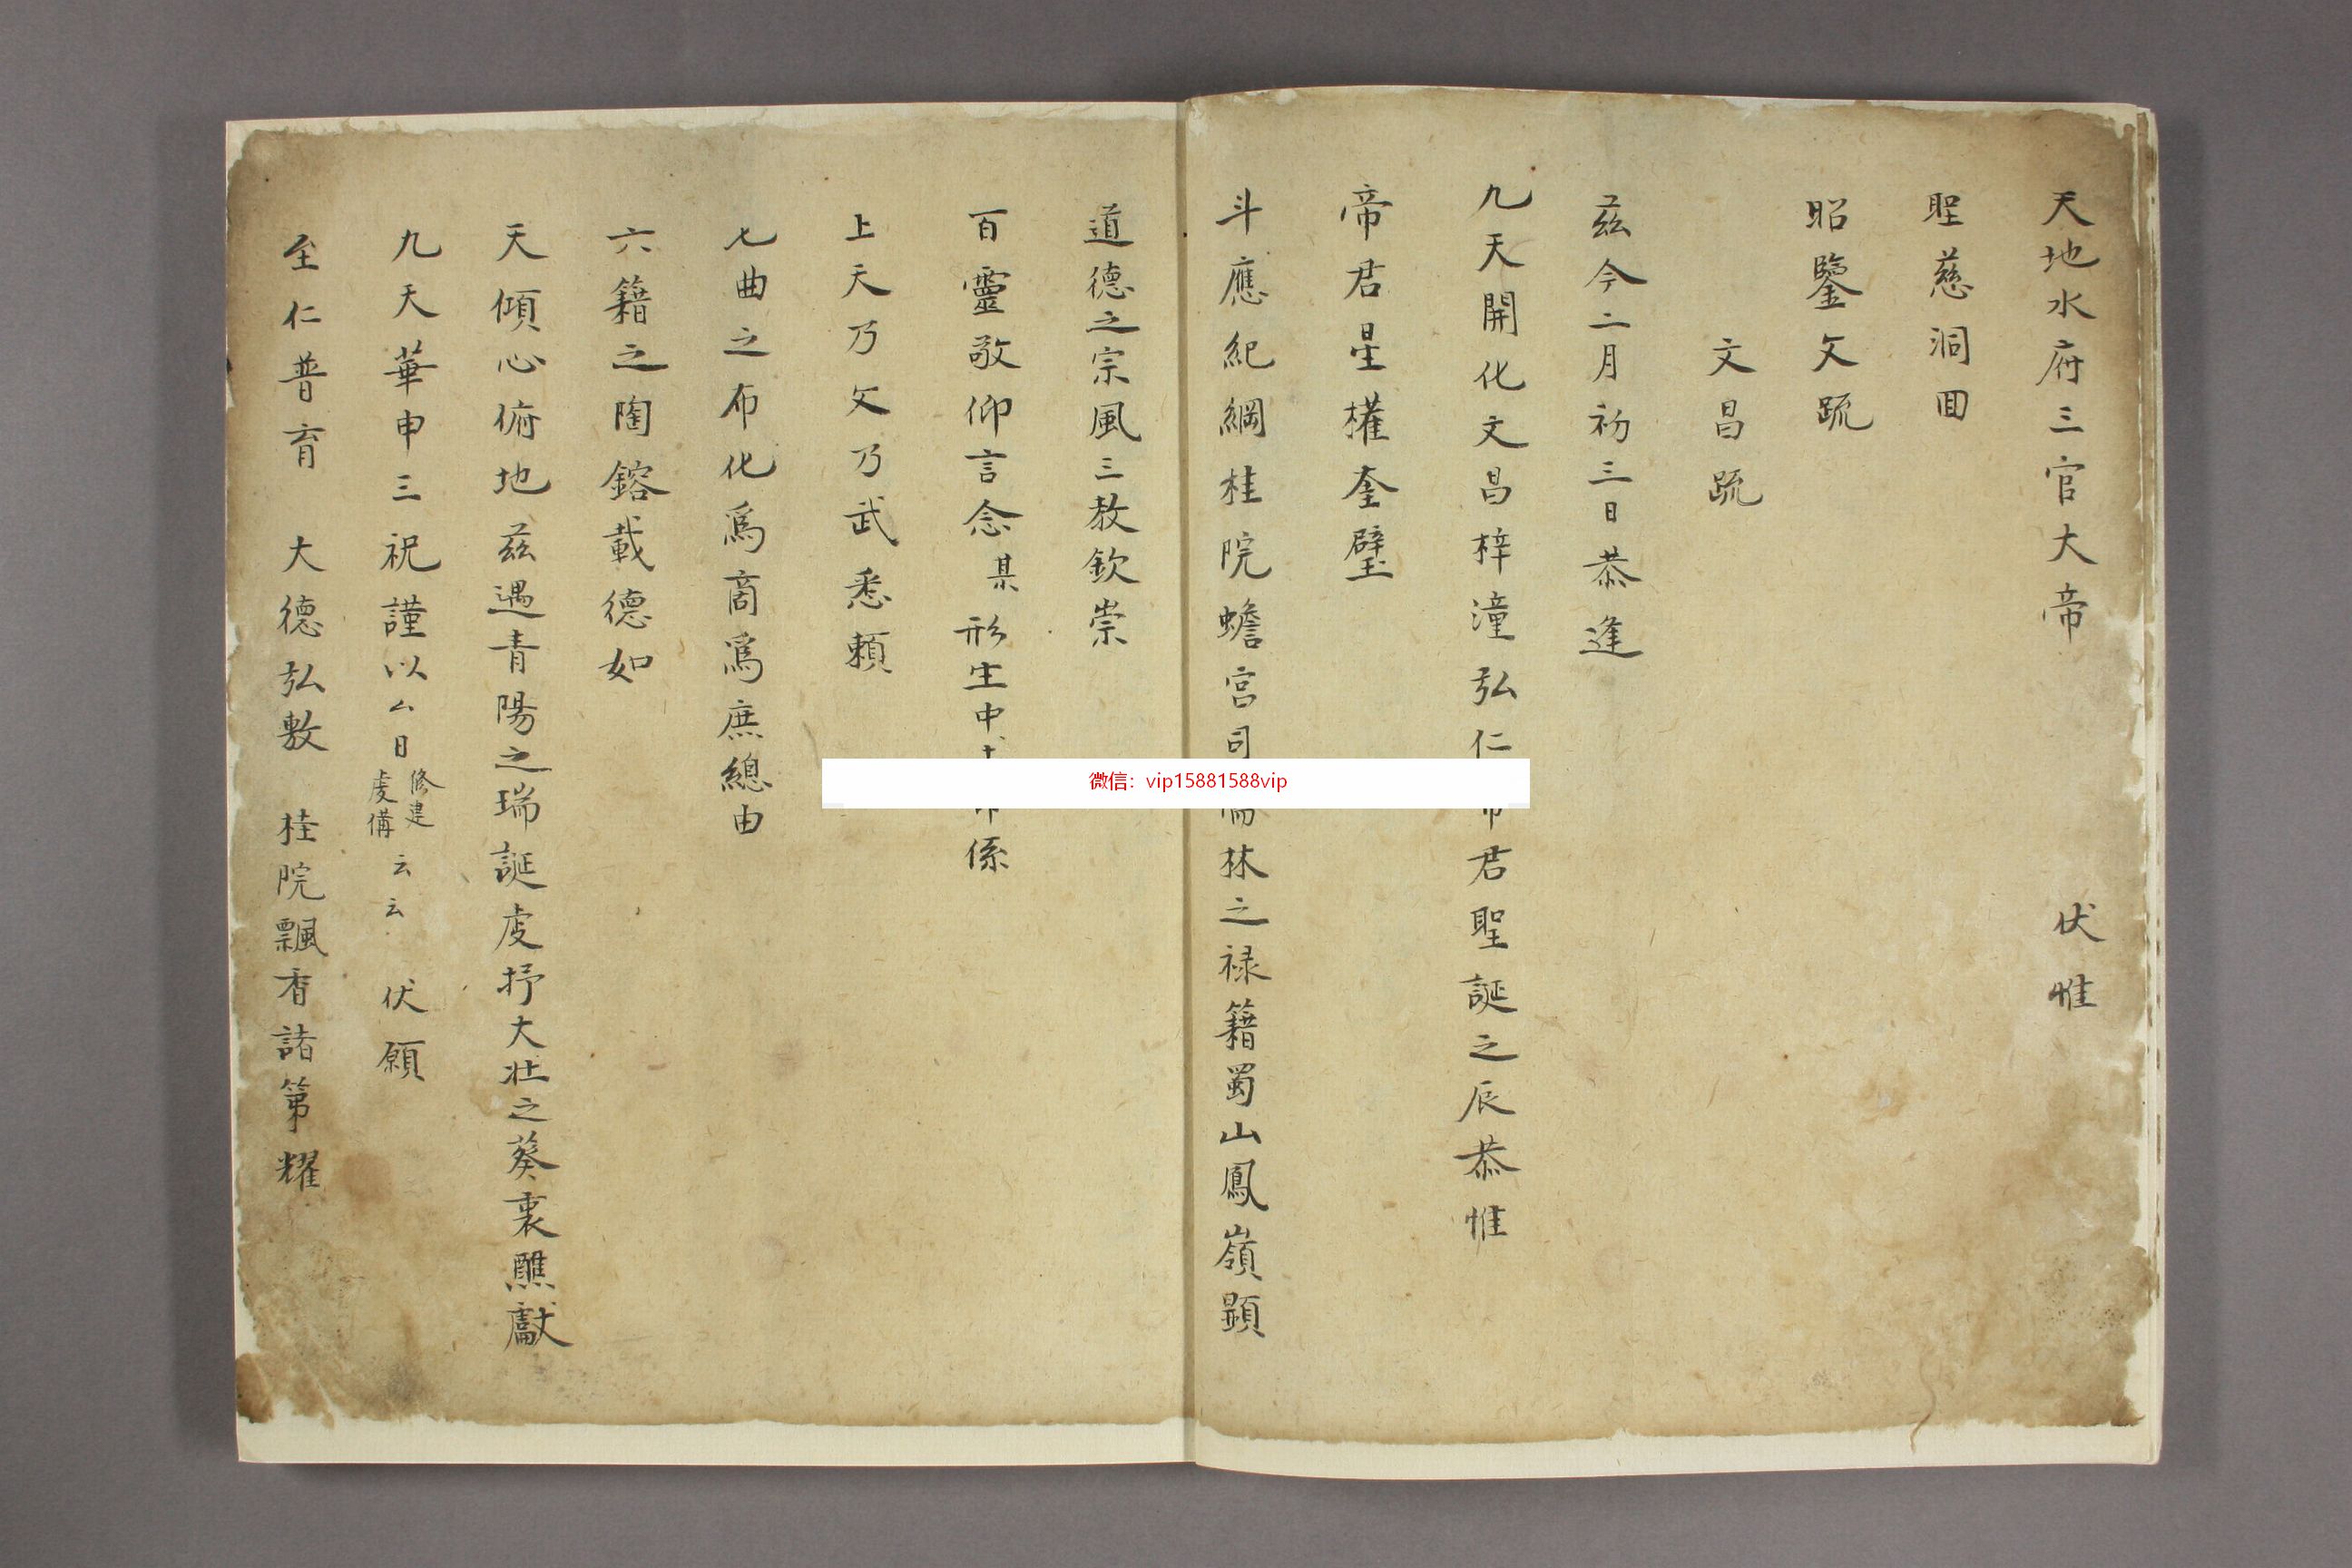 天地水府三官大帝　伏惟
聖慈洞囬
昭鑒文疏
文昌疏
茲今二月初三日恭逢
九天開化文昌梓潼弘仁帝君聖誕之辰恭惟
帝君星權奎璧
斗應紀綱桂院蟾宮司儒林之祿籍蜀山鳳嶺顯
道德之宗風三教欽崇
百靈敬仰言念某形生中係
上天乃文乃武悉賴
七曲之布化爲商爲庶總由
六籍之陶鎔載德如
天傾心俯地茲遇青陽之瑞誕虔抒大壯之葵衷醮獻
九天華申三祝謹以厶日修建虔備云云　伏願
至仁普育　大德弘敷　桂院飄香諸第耀
微信：vip15881588vip